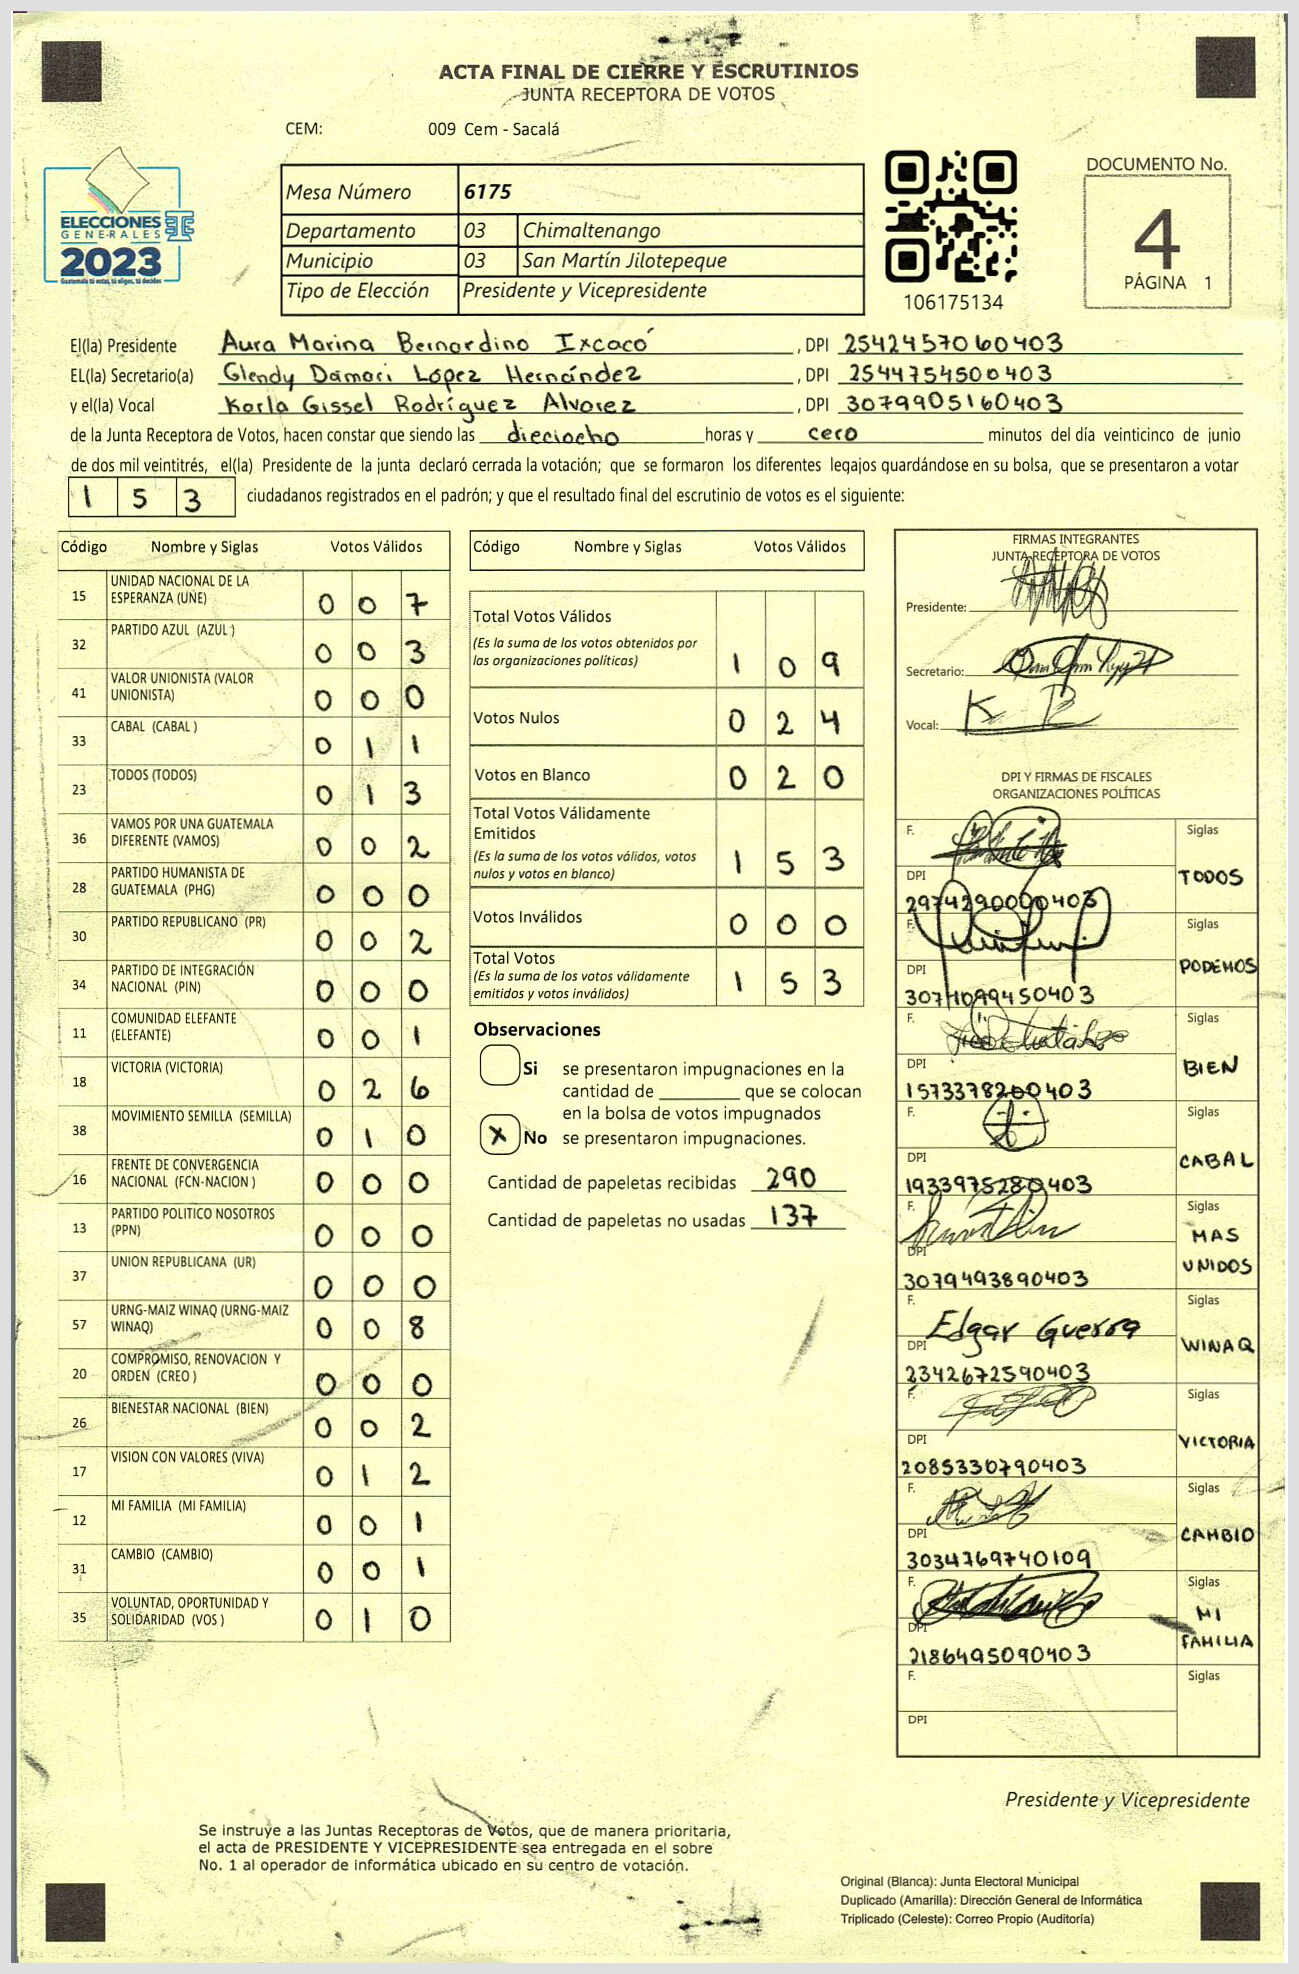 ACTA FINAL DE CIERRE Y ESCRUTINIOS
JUNTA RECEPTORA DE VOTOS
CEM: 009 Cem - Sacalá
ELECCIONES
GENERALES
2023
Guatemala tú votas, tú eliges, tú decides
Mesa Número 6175
Departamento 03 Chimaltenango
Municipio 03 San Martín Jilotepeque
Tipo de Elección Presidente y Vicepresidente
106175134
DOCUMENTO No.
4
PÁGINA 1
El(la) Presidente Aura Marina Bernardino Ixcacó , DPI 2542457060403
EL(la) Secretario(a) Glendy Damari López Hernández , DPI 2544754500403
y el(la) Vocal Karla Gissel Rodríguez Alvarez , DPI 3079905160403
de la Junta Receptora de Votos, hacen constar que siendo las dieciocho horas y cero minutos del día veinticinco de junio
de dos mil veintitrés, el(la) Presidente de la junta declaró cerrada la votación; que se formaron los diferentes legajos guardándose en su bolsa, que se presentaron a votar
1 5 3 ciudadanos registrados en el padrón; y que el resultado final del escrutinio de votos es el siguiente:
Código Nombre y Siglas Votos Válidos
15 UNIDAD NACIONAL DE LA
ESPERANZA (UNE) 0 0 7
32 PARTIDO AZUL (AZUL ) 0 0 3
41 VALOR UNIONISTA (VALOR
UNIONISTA) 0 0 0
33 CABAL (CABAL ) 0 1 1
23 TODOS (TODOS) 0 1 3
36 VAMOS POR UNA GUATEMALA
DIFERENTE (VAMOS) 0 0 2
28 PARTIDO HUMANISTA DE
GUATEMALA (PHG) 0 0 0
30 PARTIDO REPUBLICANO (PR) 0 0 2
34 PARTIDO DE INTEGRACIÓN
NACIONAL (PIN) 0 0 0
11 COMUNIDAD ELEFANTE
(ELEFANTE) 0 0 1
18 VICTORIA (VICTORIA) 0 2 6
38 MOVIMIENTO SEMILLA (SEMILLA) 0 1 0
16 FRENTE DE CONVERGENCIA
NACIONAL (FCN-NACION ) 0 0 0
13 PARTIDO POLITICO NOSOTROS
(PPN) 0 0 0
37 UNION REPUBLICANA (UR) 0 0 0
57 URNG-MAIZ WINAQ (URNG-MAIZ
WINAQ) 0 0 8
20 COMPROMISO, RENOVACION Y
ORDEN (CREO ) 0 0 0
26 BIENESTAR NACIONAL (BIEN) 0 0 2
17 VISION CON VALORES (VIVA) 0 1 2
12 MI FAMILIA (MI FAMILIA) 0 0 1
31 CAMBIO (CAMBIO) 0 0 1
35 VOLUNTAD, OPORTUNIDAD Y
SOLIDARIDAD (VOS ) 0 1 0
Código Nombre y Siglas Votos Válidos
Total Votos Válidos
(Es la suma de los votos obtenidos por
las organizaciones políticas) 1 0 9
Votos Nulos 0 2 4
Votos en Blanco 0 2 0
Total Votos Válidamente
Emitidos
(Es la suma de los votos válidos, votos
nulos y votos en blanco) 1 5 3
Votos Inválidos 0 0 0
Total Votos
(Es la suma de los votos válidamente
emitidos y votos inválidos) 1 5 3
Observaciones
Si se presentaron impugnaciones en la
cantidad de ________ que se colocan
en la bolsa de votos impugnados
X No se presentaron impugnaciones.
Cantidad de papeletas recibidas 290
Cantidad de papeletas no usadas 137
FIRMAS INTEGRANTES
JUNTA RECEPTORA DE VOTOS
Presidente:
Secretario:
Vocal:
DPI Y FIRMAS DE FISCALES
ORGANIZACIONES POLÍTICAS
F. Siglas
DPI TODOS
2974290000403
F. Siglas
DPI PODEMOS
3071099450403
F. Siglas
DPI BIEN
1573378200403
F. Siglas
DPI CABAL
1933975280403
F. Siglas
DPI MAS
UNIDOS
3079493890403
F. Edgar Guerra Siglas
DPI WINAQ
2342672590403
F. Siglas
DPI VICTORIA
2085330790403
F. Siglas
DPI CAMBIO
3034769740109
F. Siglas
DPI MI
FAMILIA
2186495090403
F. Siglas
DPI
Presidente y Vicepresidente
Se instruye a las Juntas Receptoras de Votos, que de manera prioritaria,
el acta de PRESIDENTE Y VICEPRESIDENTE sea entregada en el sobre
No. 1 al operador de informática ubicado en su centro de votación.
Original (Blanca): Junta Electoral Municipal
Duplicado (Amarilla): Dirección General de Informática
Triplicado (Celeste): Correo Propio (Auditoría)